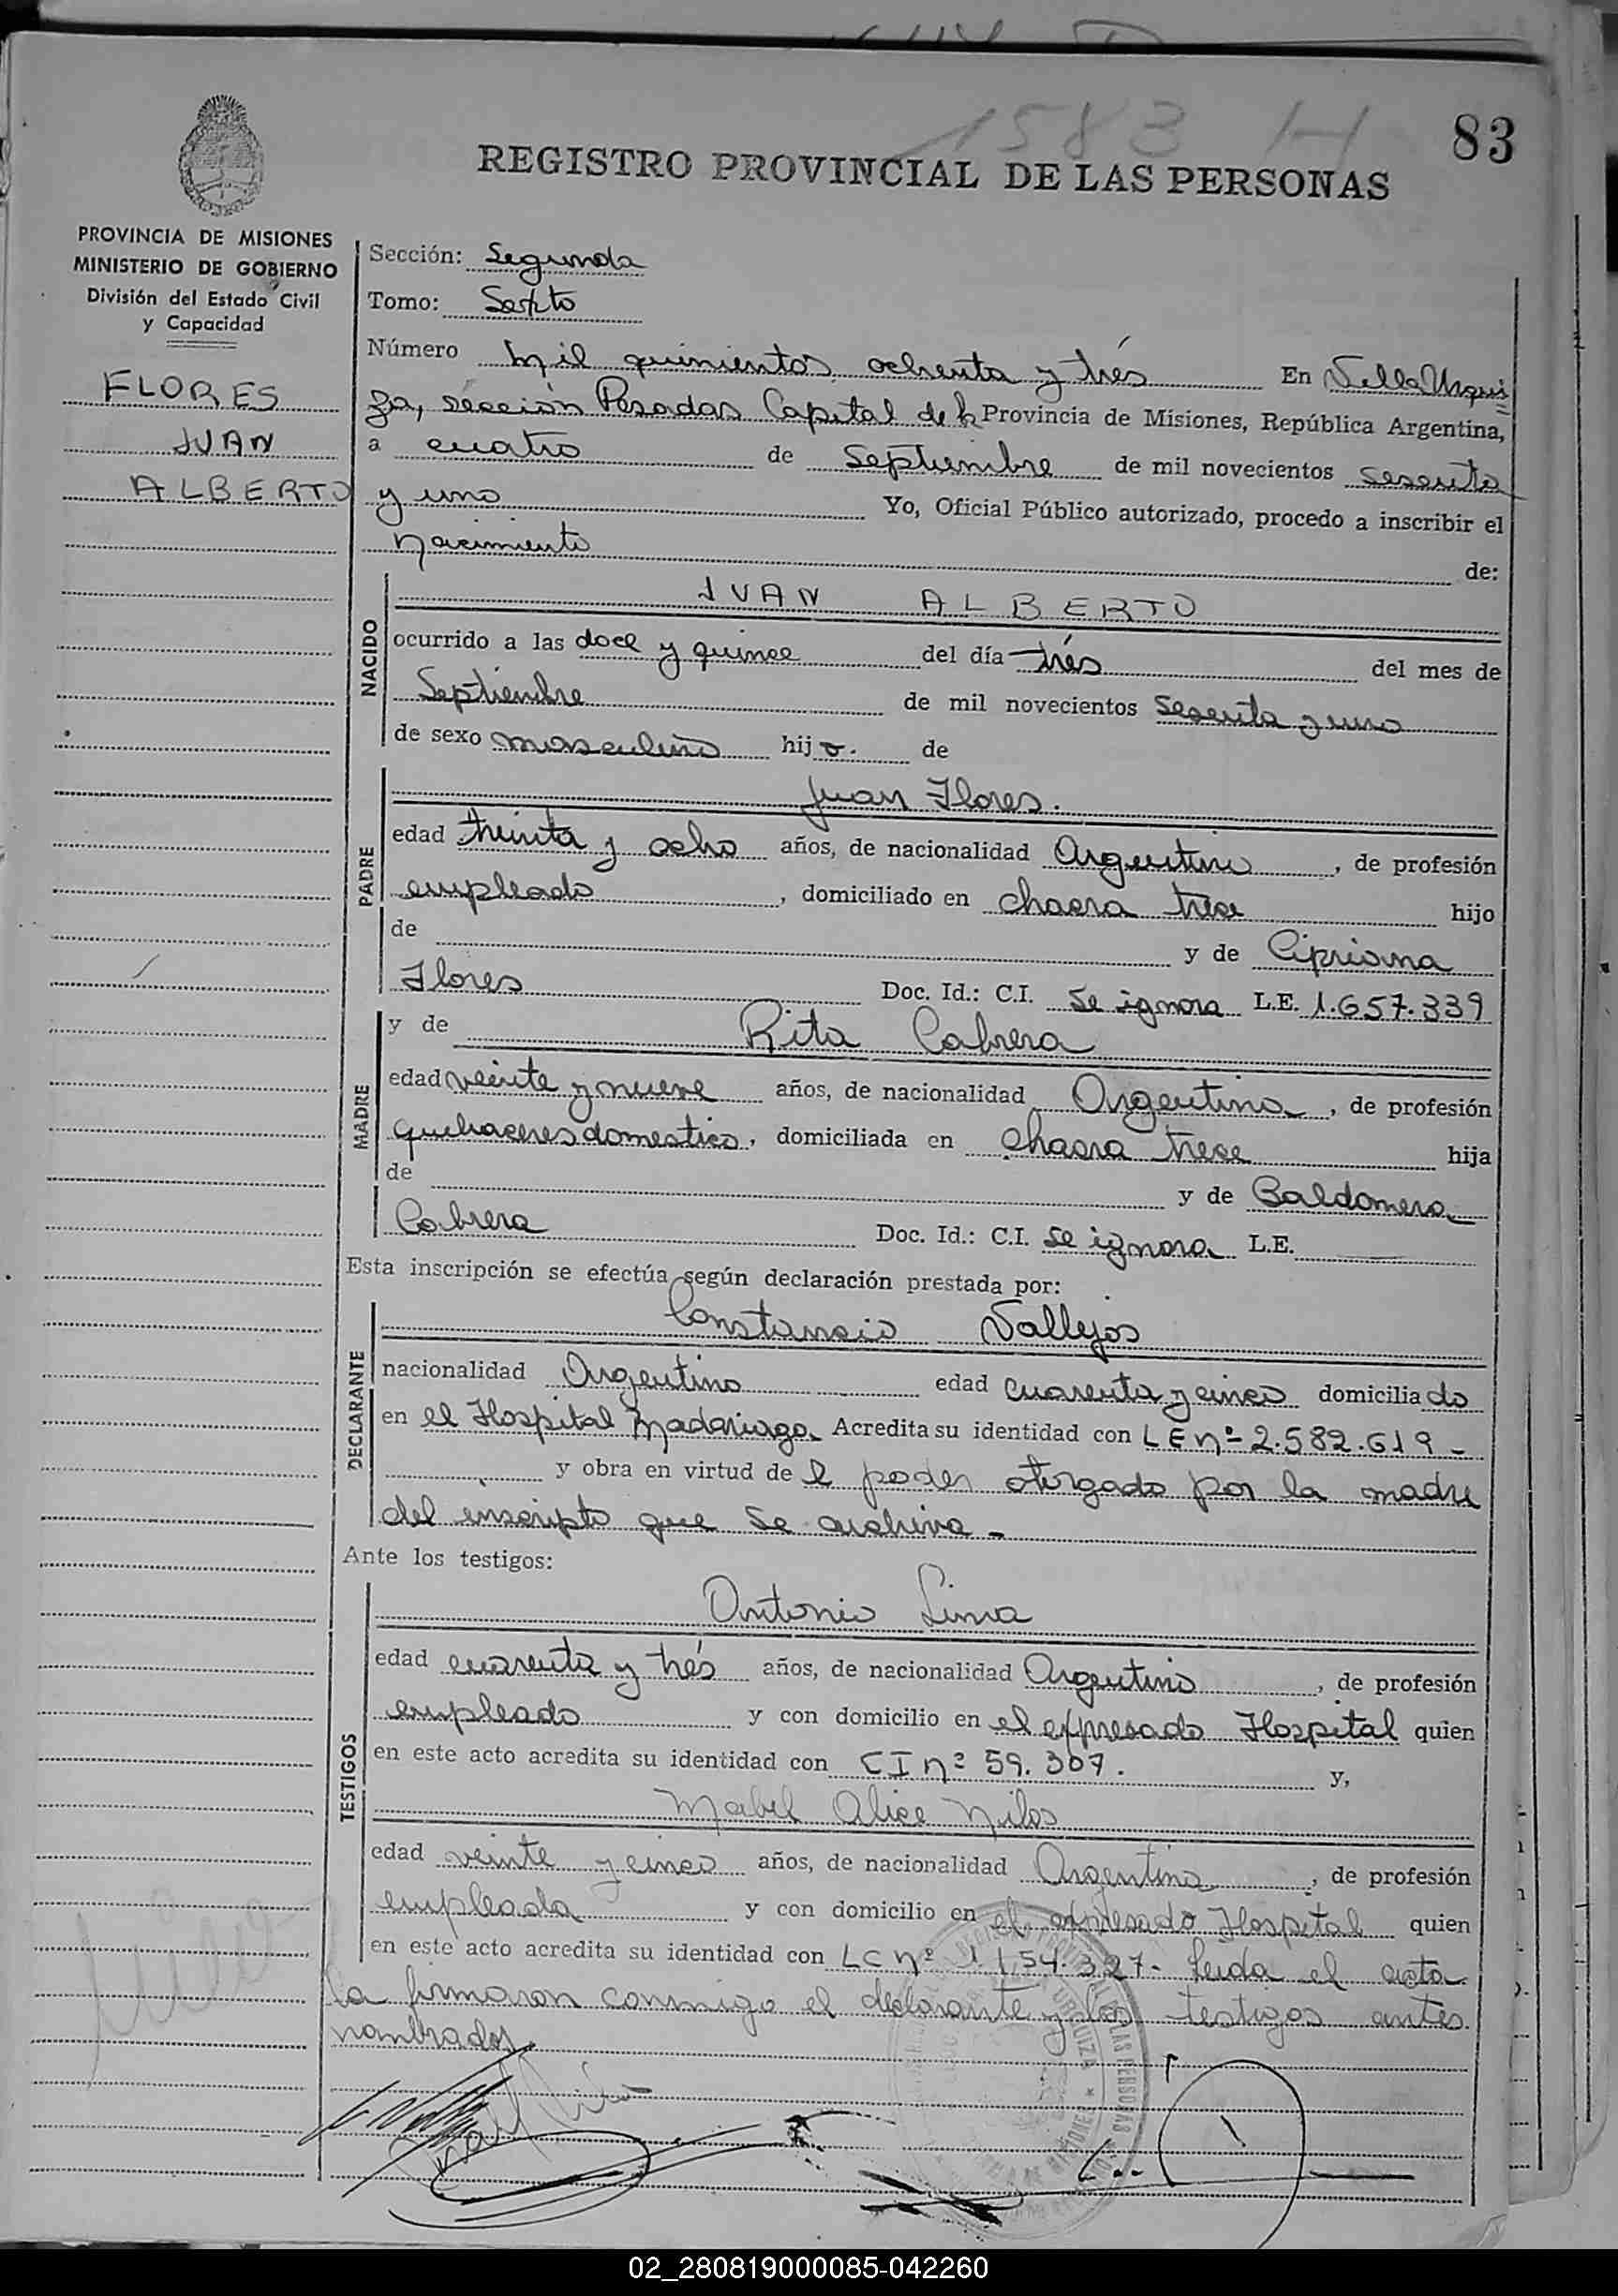 1583 H
83
REGISTRO PROVINCIAL DE LAS PERSONAS
PROVINCIA DE MISIONES
MINISTERIO DE GOBIERNO
División del Estado Civil
y Capacidad
FLORES
JUAN
ALBERTO
Sección: Segunda
Tomo: Sexto
Número Mil quinientos ochenta y trés En Villa Urqui
za, sección Posadas Capital de la Provincia de Misiones, República Argentina,
a cuatro de Septiembre de mil novecientos sesenta
y uno Yo, Oficial Público autorizado, procedo a inscribir el
nacimiento de:
NACIDO
JUAN ALBERTO
ocurrido a las doce y quince del día trés del mes de
Septiembre de mil novecientos sesenta y uno
de sexo masculino hijo. de
PADRE
Juan Flores.
edad treinta y ocho años, de nacionalidad Argentino, de profesión
empleado, domiciliado en chacra trece hijo
de y de Cipriana
Flores Doc. Id.: C.I. se ignora L.E. 1.657.339
MADRE
y de Rita Cabrera
edad veinte y nueve años, de nacionalidad Argentina, de profesión
quehaceres domestico, domiciliada en chacra trece hija
de y de Baldomera
Cabrera Doc. Id.: C.I. se ignora L.E.
Esta inscripción se efectúa según declaración prestada por:
DECLARANTE
Constancio Vallejos
nacionalidad Argentino edad cuarenta y cinco domiciliado
en el Hospital Madariaga. Acredita su identidad con LE nº 2.582.619-
y obra en virtud de l poder otorgado por la madre
del inscripto que se archiva-
Ante los testigos:
TESTIGOS
Antonio Lima
edad cuarenta y trés años, de nacionalidad Argentino, de profesión
empleado y con domicilio en el expresado Hospital quien
en este acto acredita su identidad con CI nº 59.307. y,
Mabel Alice
edad veinte y cinco años, de nacionalidad Argentina, de profesión
empleada y con domicilio en el expresado Hospital quien
en este acto acredita su identidad con LC nº 1.154.327- Leida el acta
la firmaron conmigo el declarante y los testigos antes
nombrados.
02_280819000085-042260